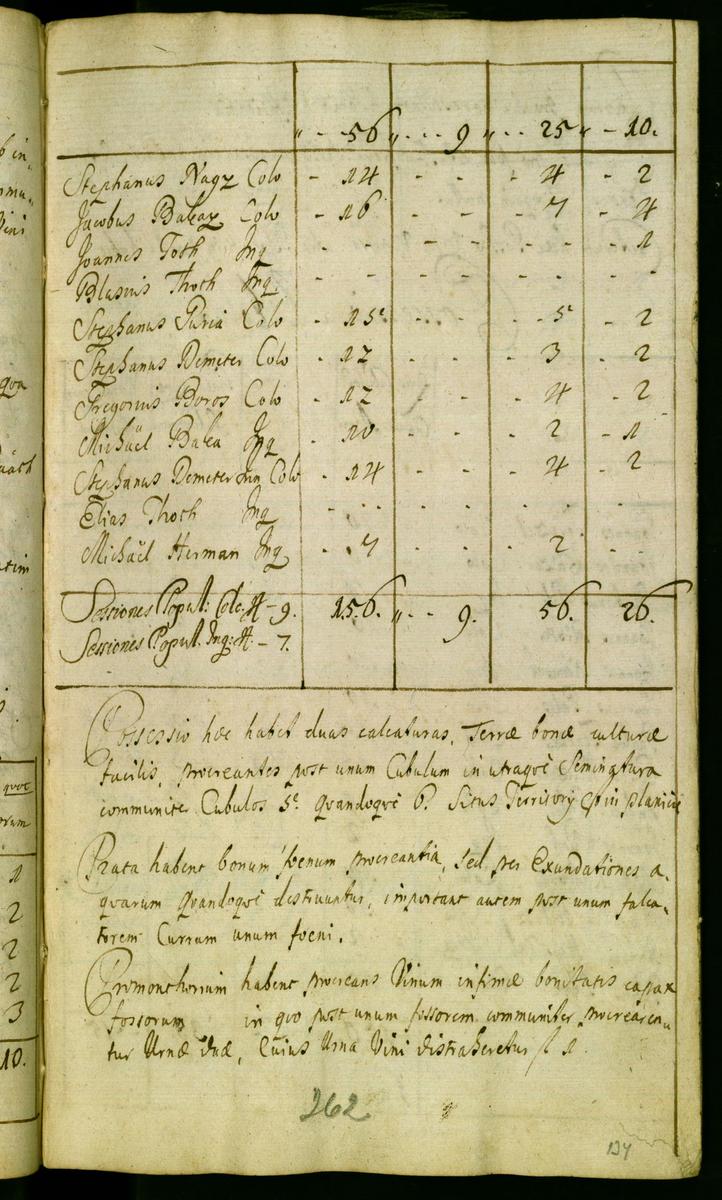 „ - - 56 „ - - - 9 „ - - 25 „ - 10.
Stephanus Nagy Colo - 14 - - - 4 - 2
Jacobus Balcaz Colo - 16 - - - 7 - 4
Joannes Toth Inq - - - - - - - 1
Blasius Thoth Inq. - - - - - - - -
Stephanus Puria Colo - 15 - - - - - 5 - 2
Stephanus Demeter Colo - 12 - - - 3 - 2
Gregorius Boros Colo - 12 - - - 4 - 2
Michaël Balca Inq - 10 - - - 2 - 1
Stephanus Demeter Jun Colo - 14 - - - 4 - 2
Elias Thoth Inq - - - - - - - -
Michaël Herman Inq - 7 - - - 2 - -
Sessiones Popul: Colo: H - 9. 156. „ - - 9. 56. 26.
Sessiones Popul. Inq: H. - 7.
Possessio hæc habet duas calcaturas, Terræ bonæ culturæ
facilis, procreantes post unum Cubulum in utraque Seminatura
communiter Cubulos 5. quandoque 6. Situs Territory est in planicie
Prata habent bonum foenum procreantia, sed per Exundationes a-
quarum quandoque destruuntur, important autem post unum falca-
torem Currum unum foeni.
Promonthorium habent procreans Vinum infimæ bonitatis capax
fossorum in quo post unum fossorem communiter procrearen-
tur Urnæ duæ, Cuius Urna Vini distraheretur f 1.
262
134
10.